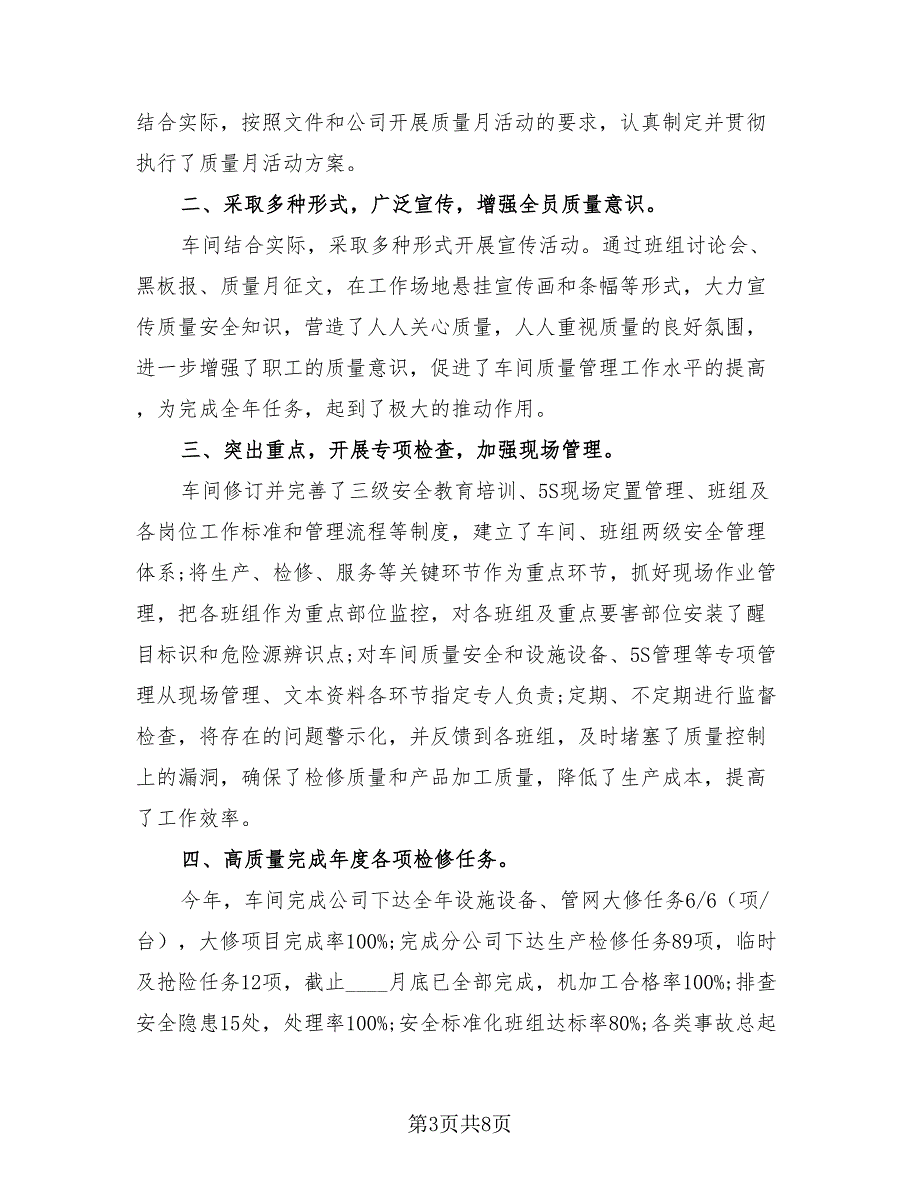 结合实际，按照文件和公司开展质量月活动的要求，认真制定并贯彻
执行了质量月活动方案。
二、采取多种形式，广泛宣传，增强全员质量意识。
车间结合实际，采取多种形式开展宣传活动。通过班组讨论会、
黑板报、质量月征文，在工作场地悬挂宣传画和条幅等形式，大力宣
传质量安全知识，营造了人人关心质量，人人重视质量的良好氛围，
进一步增强了职工的质量意识，促进了车间质量管理工作水平的提高
，为完成全年任务，起到了极大的推动作用。
三、突出重点，开展专项检查，加强现场管理。
车间修订并完善了三级安全教育培训、5S现场定置管理、班组及
各岗位工作标准和管理流程等制度，建立了车间、班组两级安全管理
体系;将生产、检修、服务等关键环节作为重点环节，抓好现场作业管
理，把各班组作为重点部位监控，对各班组及重点要害部位安装了醒
目标识和危险源辨识点;对车间质量安全和设施设备、5S管理等专项管
理从现场管理、文本资料各环节指定专人负责;定期、不定期进行监督
检查，将存在的问题警示化，并反馈到各班组，及时堵塞了质量控制
上的漏洞，确保了检修质量和产品加工质量，降低了生产成本，提高
了工作效率。
四、高质量完成年度各项检修任务。
今年，车间完成公司下达全年设施设备、管网大修任务6/6（项/
台），大修项目完成率100%;完成分公司下达生产检修任务89项，临时
及抢险任务12项，截止____月底已全部完成，机加工合格率100%;排查
安全隐患15处，处理率100%;安全标准化班组达标率80%;各类事故总起
第3页共8页